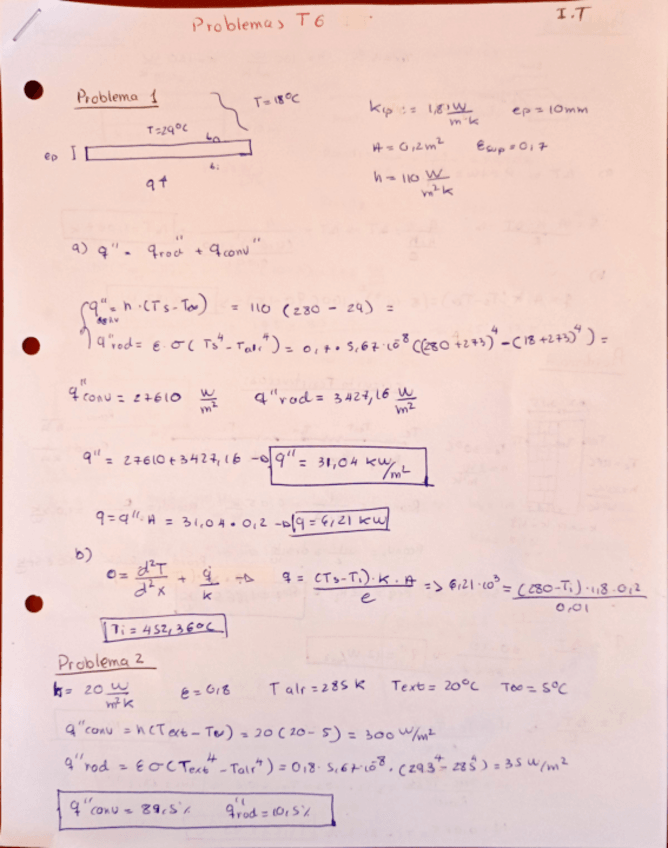 Problemas T6
I.T
Problema 1
T=18ºC
T=29ºC
ep
q
Kp := 1,8 W/m·K   ep = 10mm
A = 0,2 m²   Esup = 0,7
h = 110 W/m²K
a) q'' = qrad'' + qconv''
q'' = h·(Ts-T∞) = 110 (280 - 29) =
q''rad = ε·σ(Ts⁴-Talr⁴) = 0,7·5,67·10⁻⁸((280+273)⁴-(18+273)⁴) =
q''conv = 27610 W/m²   q''rad = 3427,16 W/m²
q'' = 27610+3427,16 → q'' = 31,04 kW/m²
q = q''·A = 31,04·0,2 → q = 6,21 kW
b)
0 = d²T/d²x + q̇/k → q = (Ts-Ti)·K·A/e => 6,21·10³ = (280-Ti)·1,8·0,2/0,01
Ti = 452,36ºC
Problema 2
h = 20 W/m²K   ε = 0,8   Talr = 285 K   Text = 20ºC   T∞ = 5ºC
q''conv = h(Text-T∞) = 20(20-5) = 300 W/m²
q''rad = εσ(Text⁴-Talr⁴) = 0,8·5,67·10⁻⁸·(293⁴-285⁴) = 35 W/m²
q''conv = 89,5%   q''rad = 10,5%